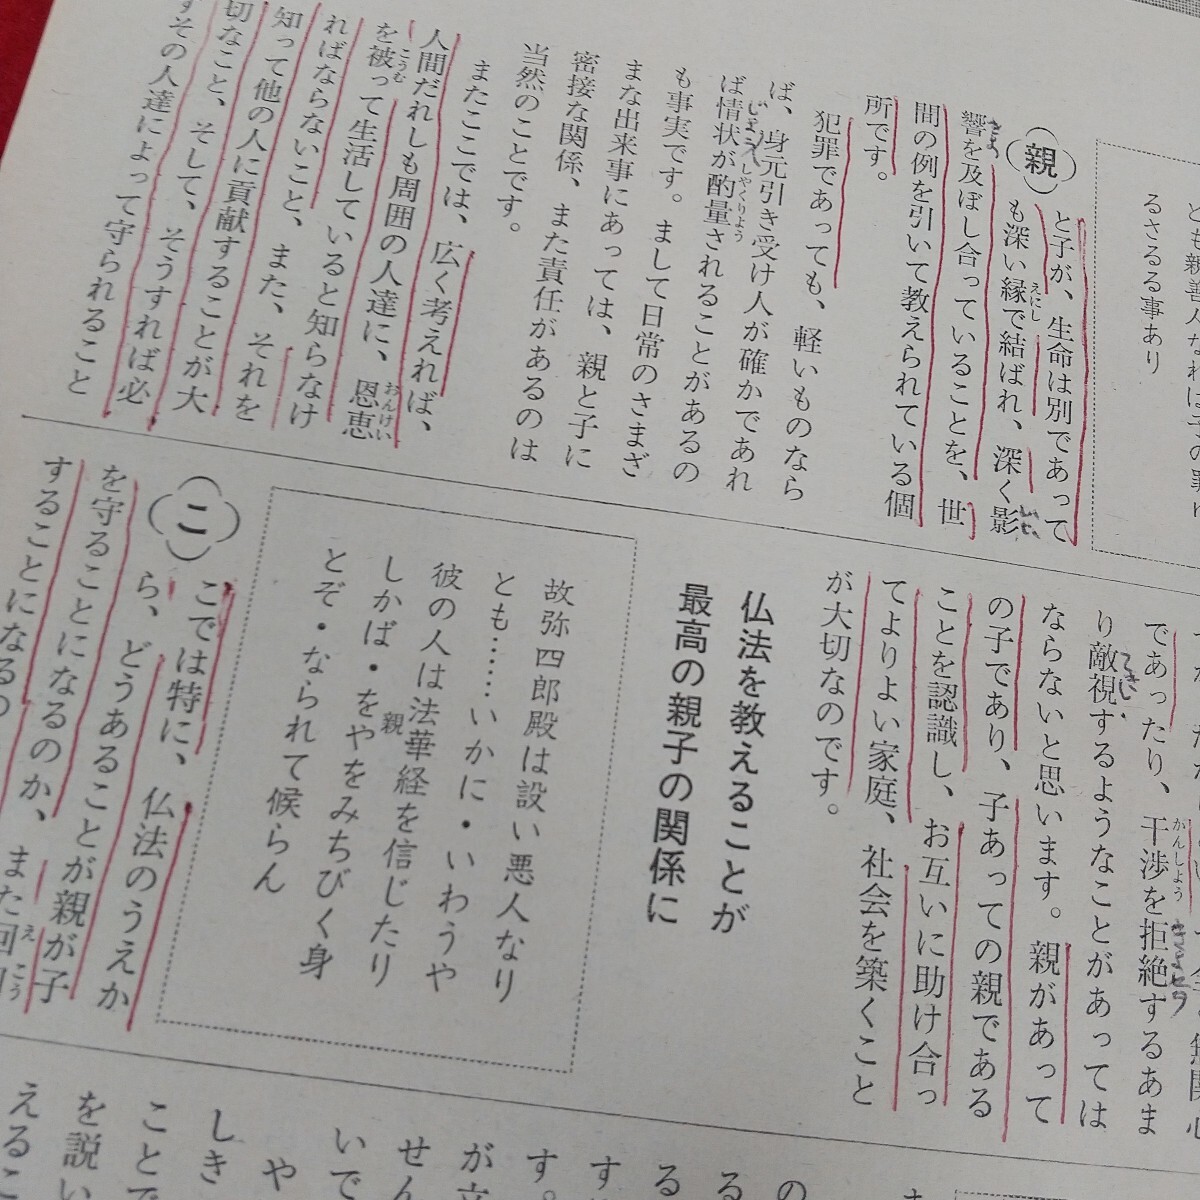 るさるる事あり
親
と子が、生命は別であって
も深い縁で結ばれ、深く影
えにし
響を及ぼし合っていることを、世
間の例を引いて教えられている個
所です。
犯罪であっても、軽いものなら
ば、身元引き受け人が確かであれ
ば情状が酌量されることがあるの
しやくりよう
も事実です。まして日常のさまざ
まな出来事にあっては、親と子に
密接な関係、また責任があるのは
当然のことです。
またここでは、広く考えれば、
人間だれしも周囲の人達に、恩恵
おんけい
を被って生活していると知らなけ
こうむ
ればならないこと、また、それを
知って他の人に貢献することが大
切なこと、そして、そうすれば必
ずその人達によって守られること
であったり、干渉を拒絶するあま
かんしよう
り敵視するようなことがあっては
ならないと思います。親があって
の子であり、子あっての親である
ことを認識し、お互いに助け合っ
てよりよい家庭、社会を築くこと
が大切なのです。
仏法を教えることが
最高の親子の関係に
故弥四郎殿は設い悪人なり
とも……いかに・いわうや
彼の人は法華経を信じたり
しかば・をやをみちびく身
親
とぞ・なられて候らん
こ
こでは特に、仏法のうえか
ら、どうあることが親が子
を守ることになるのか、また回向
えこう
することになるの
る
す
す。
が立
せん
いで
や
しき
ことで
を説い
えるこ